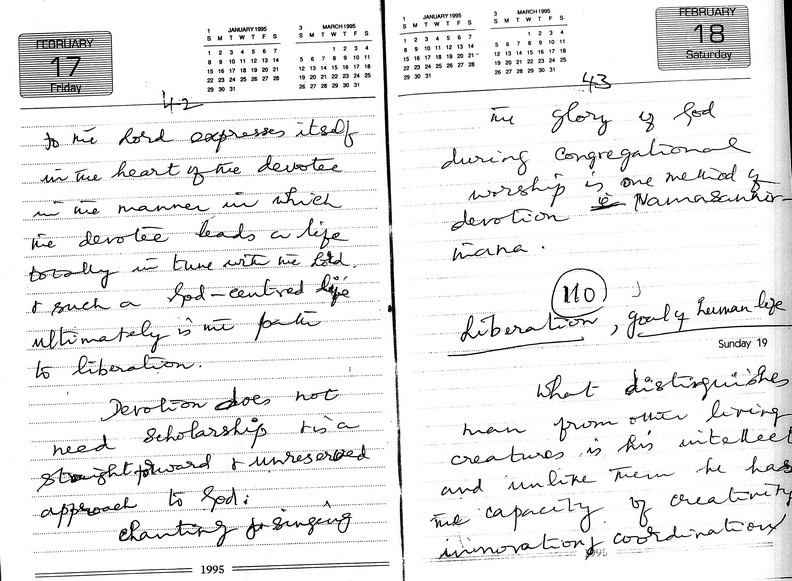 FEBRUARY
17
Friday
1 JANUARY 1995
S M T W T F S
1 2 3 4 5 6 7
8 9 10 11 12 13 14
15 16 17 18 19 20 21
22 23 24 25 26 27 28
29 30 31
3 MARCH 1995
S M T W T F S
1 2 3 4
5 6 7 8 9 10 11
12 13 14 15 16 17 18
19 20 21 22 23 24 25
26 27 28 29 30 31
42
to the Lord expresses itself
in the heart of the devotee
in the manner in which
the devotee leads a life
totally in tune with the Lord.
& such a God-centred life
ultimately is the path
to liberation.
Devotion does not
need scholarship & is a
straightforward & unreserved
approach to God.
chanting & singing
1995
1 JANUARY 1995
S M T W T F S
1 2 3 4 5 6 7
8 9 10 11 12 13 14
15 16 17 18 19 20 21
22 23 24 25 26 27 28
29 30 31
3 MARCH 1995
S M T W T F S
1 2 3 4
5 6 7 8 9 10 11
12 13 14 15 16 17 18
19 20 21 22 23 24 25
26 27 28 29 30 31
FEBRUARY
18
Saturday
43
the glory of God
during congregational
worship is one method of
devotion
mana.
110
Liberation, goal of human life
Sunday 19
What distinguishes
man from other living
creatures is his intellect
and unlike them he has
the capacity of creativity
innovation & coordination
1995